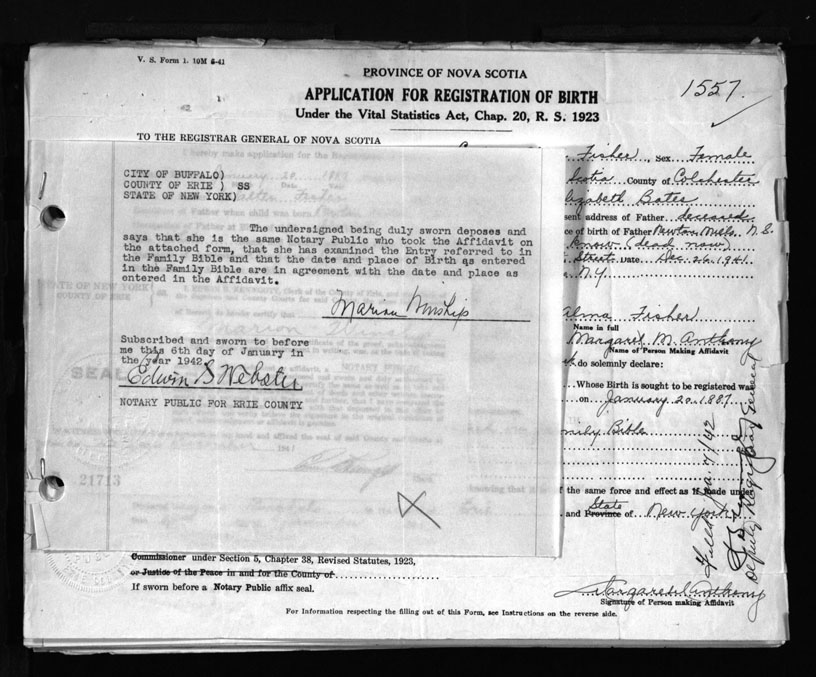 V. S. Form 1. 10M 6-41
PROVINCE OF NOVA SCOTIA
1557.
APPLICATION FOR REGISTRATION OF BIRTH
Under the Vital Statistics Act, Chap. 20, R. S. 1923
TO THE REGISTRAR GENERAL OF NOVA SCOTIA
Fisher, Sex Female
Scotia County of Colchester
Elizabeth Bates
sent address of Father deceased
ce of birth of Father Newton Mills N. S.
know (dead now)
Street Date Dec. 26 1941.
N.Y.
CITY OF BUFFALO)
COUNTY OF ERIE ) SS
STATE OF NEW YORK)
The undersigned being duly sworn deposes and
says that she is the same Notary Public who took the Affidavit on
the attached form, that she has examined the Entry referred to in
the Family Bible and that the date and place of Birth as entered
in the Family Bible are in agreement with the date and place as
entered in the Affidavit.
Marian Winship
Subscribed and sworn to before
me this 6th day of January in
the year 1942.
Edwin S Webster
NOTARY PUBLIC FOR ERIE COUNTY
21713
alma Fisher
Name in full
Margaret M. Anthony
Name of Person Making Affidavit
do solemnly declare:
Whose Birth is sought to be registered was
on January 20 1887
mily Bible
f the same force and effect as if made under
and Province of State New York
Filed Jan 7/42
Deputy Registrar General
Commissioner under Section 5, Chapter 38, Revised Statutes, 1923,
or Justice of the Peace in and for the County of
If sworn before a Notary Public affix seal.
Margaret M Anthony
Signature of Person making Affidavit
For Information respecting the filling out of this Form, see Instructions on the reverse side.